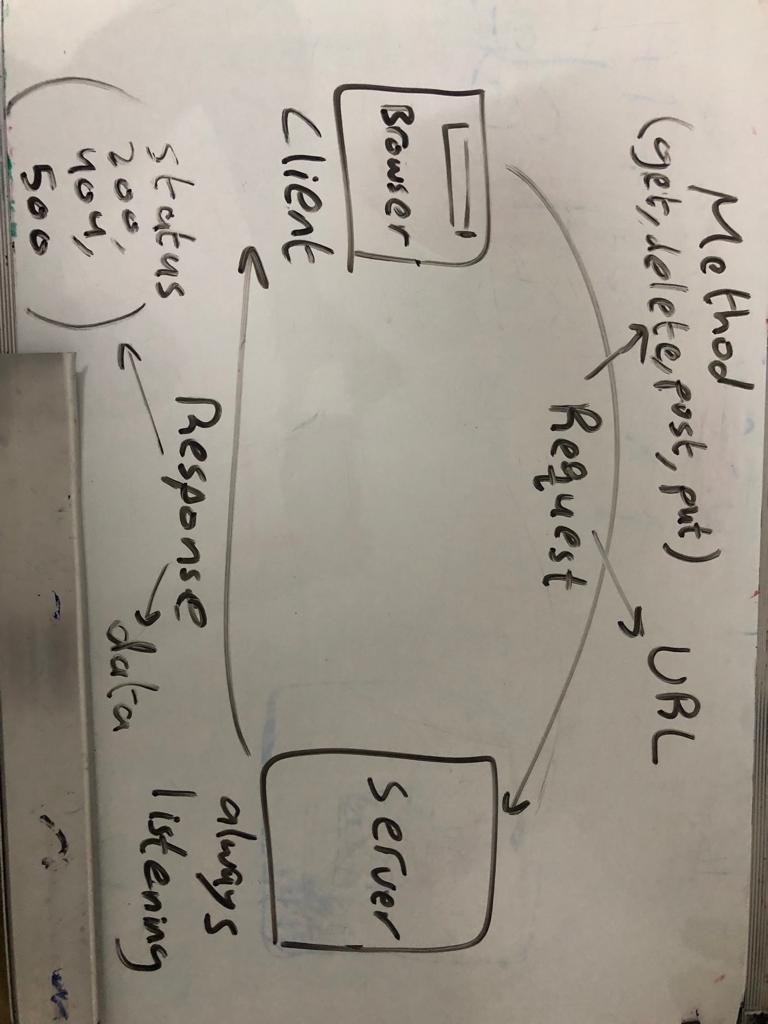 Method
(get, delete, post, put)
URL
Request
Browser
Client
server
always
listening
Response
status
200,
404,
500
data